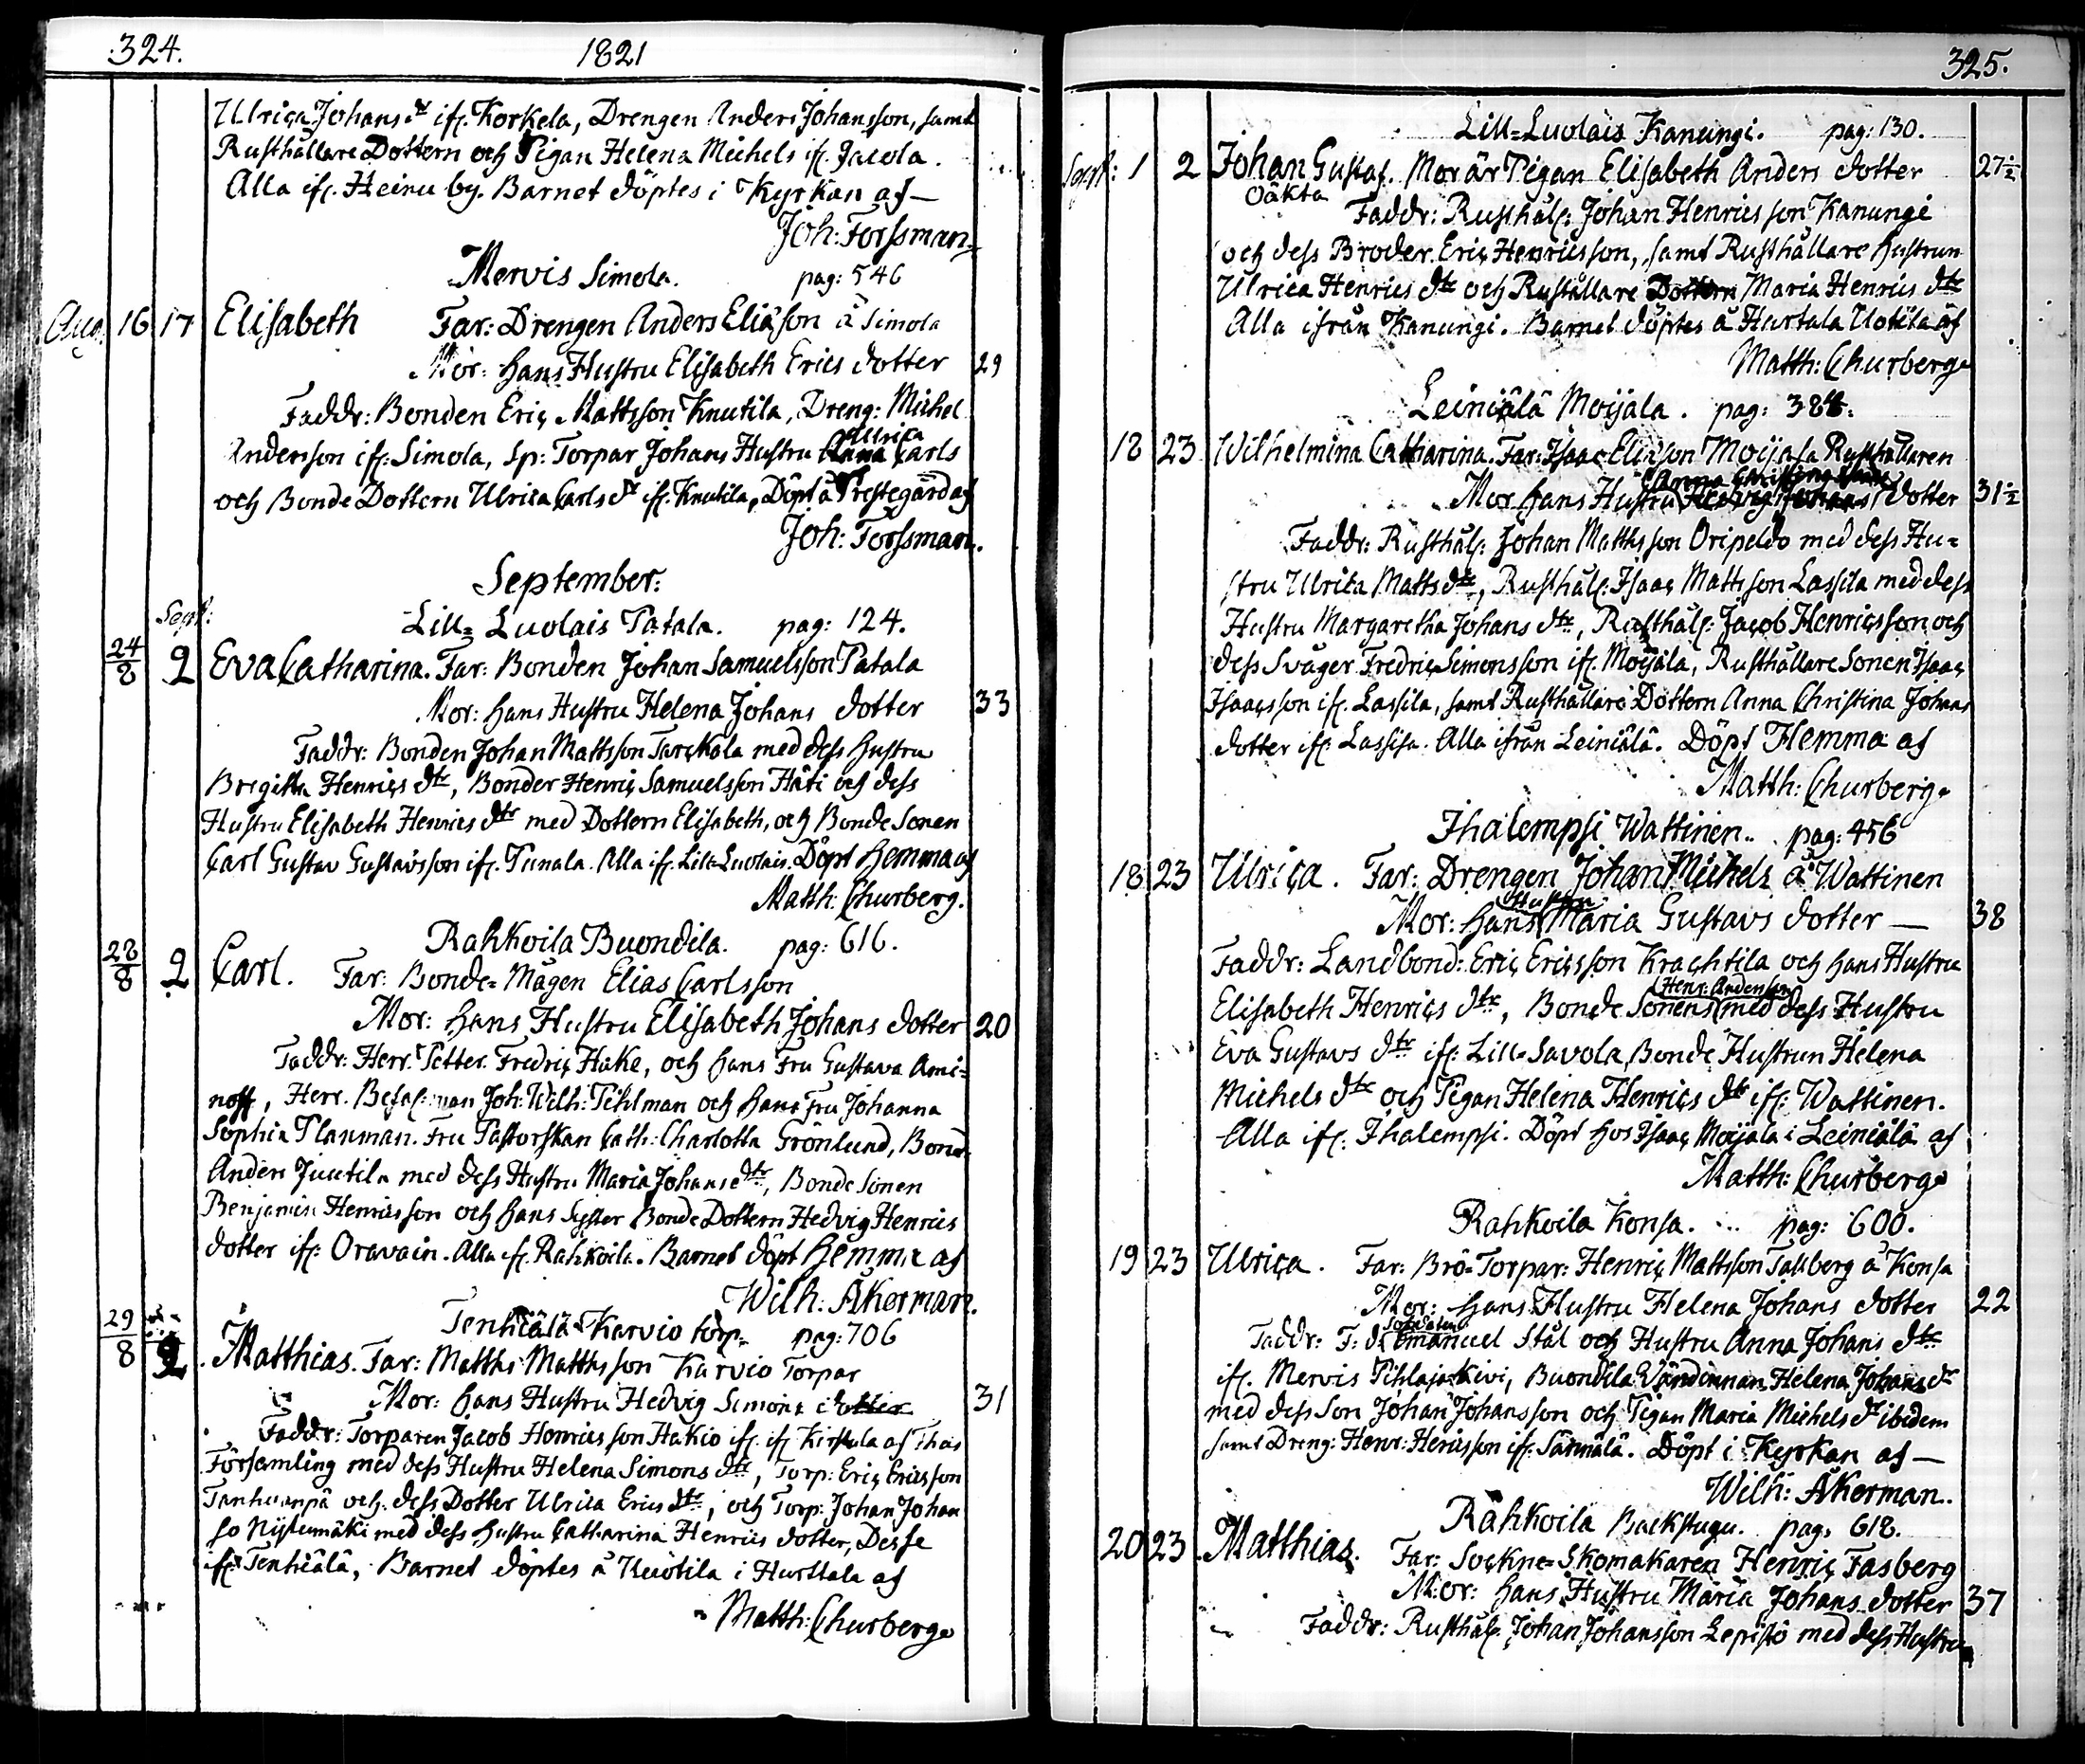 324.
1821
Ulrica Johans dr if. Korkela, Drengen Anders Johansson, samt
Rusthållare Dottern och Pigan Helena Michels if. Jacola.
Alla if. Heinu by. Barnet döptes i Kyrkan af —
Joh: Forssman.
Mervis Simola. pag: 546
Aug. 16 17 Elisabeth Far: Drengen Anders Eliasson å Simola
Mor: Hans Hustru Elisabeth Erics dotter 29
Faddr: Bonden Eric Mattsson Knutila, Dreng: Michel
Andersson if: Simola, Sp: Torpar Johans Hustru Ulrica Carls
och Bonde Dottern Ulrica Carls dr if. Knutila, Döpt å Prestegård af
Joh: Forssman.
September.
Sept:
Lill=Luolais Patala. pag: 124.
24/8 2 Eva Catharina. Far: Bonden Johan Samuelsson Patala
Mor: Hans Hustru Helena Johans dotter 33
Faddr: Bonden Johan Mattsson Tarckola med dess Hustru
Brigitta Henrics dtr, Bonden Henric Samuelsson Häti och dess
Hustru Elisabeth Henrics dtr med Dottern Elisabeth, och Bonde Sonen
Carl Gustav Gustavsson if. Punala. Alla if. Lill=Luolais. Döpt Hemma af
Matth: Churberg.
Rahkoila Buondila. pag: 616.
28/8 2 Carl. Far: Bonde=Mågen Elias Carlsson
Mor: Hans Hustru Elisabeth Johans dotter 20
Faddr: Herr. Petter Fredric Hake, och Hans Fru Gustava Ami=
noff, Herr. Befal:man Joh: Wilh: Pihlman och Hans Fru Johanna
Sophia Planman. Fru Pastorskan Cath: Charlotta Grönlund, Bond.
Anders Juutila med dess Hustru Maria Johans dtr, Bonde Sonen
Benjamin Henricsson och Hans Syster Bonde Dottern Hedvig Henrics
dotter if: Oravain. Alla if. Rahkoila. Barnet döpt Hemma af
Wilh: Åkerman.
Tenhiälä Karvio torp. pag: 706
29/8 2 Matthias. Far: Matths Matthsson Karvio Torpar
Mor: Hans Hustru Hedvig Simons dotter 31
Faddr: Torparen Jacob Henricsson Hakio if. if. Kirstula af Thus
Församling med dess Hustru Helena Simons dtr, Torp: Eric Ericsson
Tanhuanpä och dess Dotter Ulrica Erics dtr, och Torp: Johan Johan
so Nystumäki med dess Hustru Catharina Henrics dotter, Desse
if. Tenhiälä, Barnet döptes å Uotila i Hurttala af
Matth: Churberg.
325.
Lill=Luolais Kanungi. pag: 130.
Sept: 1 2 Johan Gustaf. Mor är Pigan Elisabeth Anders dotter 27½
Oäkta
Faddr: Rusthål: Johan Henricsson Kanungi
och dess Broder Eric Henricsson, samt Rusthållare Hustrun
Ulrica Henrics dtr och Rusthållare Dottern Maria Henrics dtr
Alla ifrån Kanungi. Barnet döptes å Hurtala Uotila af
Matth: Churberg
Leiniälä Moijala. pag: 388.
18 23 Wilhelmina Catharina. Far: Isaac Eliasson Moijala Rusthållaren
Mor Hans Hustru Anna Christina dotter 31½
Faddr: Rusthål: Johan Matthsson Oripeldo med dess Hu=
stru Ulrica Matts dtr, Rusthål: Isaac Mattsson Lassila med dess
Hustru Margaretha Johans dtr, Rusthål: Jacob Henricsson och
dess Svåger Fredric Simonsson if. Moijala, Rusthållare Sonen Isaac
Isaacsson if. Lassila, samt Rusthållare Dottern Anna Christina Johans
dotter if: Lassila. Alla ifrån Leiniälä. Döpt Hemma af
Matth: Churberg.
Ihalempsi Wattinen. pag: 456
18 23 Ulrica. Far: Drengen Johan Michels å Wattinen
Mor: Hans Hustru Maria Gustavs dotter — 38
Faddr: Landbond: Eric Ericsson Krachtila och Hans Hustru
Elisabeth Henrics dtr, Bonde Sonens Henr: Andersson med dess Hustru
Eva Gustavs dtr if: Lill=Savola, Bonde Hustrun Helena
Michels dtr och Pigan Helena Henrics dtr if: Wattinen.
Alla if. Ihalempsi. Döpt hos Isaac Moijala i Leiniälä af
Matth: Churberg
Rahkoila Konsa. pag: 600.
19 23 Ulrica. Far: Brö=Torpar: Henric Mattsson Tallberg å Konsa
Mor: Hans Hustru Helena Johans dotter 22
Faddr: F: d: Soldaten Emanuel Stål och Hustru Anna Johans dtr
if. Mervis Pihlajakivi, Buondila Värdinnan Helena Johans dr
med dess Son Johan Johansson och Pigan Maria Michels dr ibidem
samt Dreng: Henr: Henricsson if. Särnälä. Döpt i Kyrkan af —
Wilh: Åkerman.
Rahkoila Backstugu. pag. 618.
20 23 Matthias. Far: Sockne=Skomakaren Henric Fasberg
Mor: Hans Hustru Maria Johans dotter 37
Faddr: Rusthål: Johan Johansson Lepistö med dess Hustru